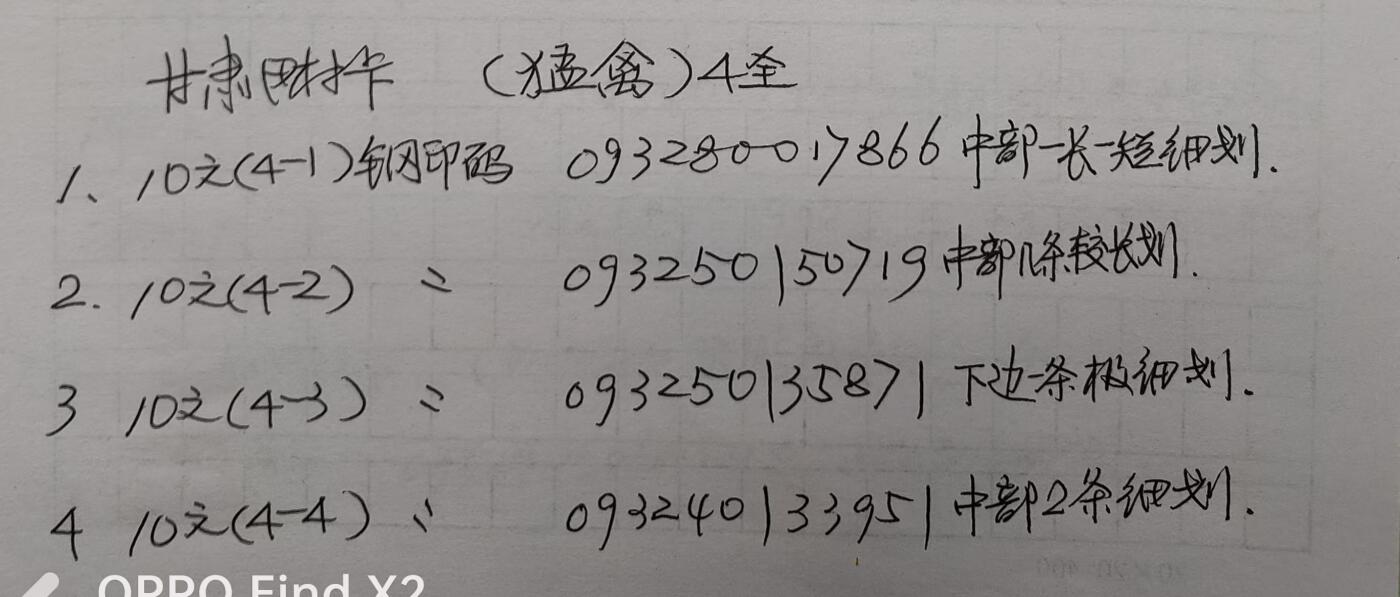 甘肃田村卡 (猛禽)4全
1、10元(4-1)钢印码 093280017866 中部一长一短细划.
2. 10元(4-2) 〃 093250150719 中部几条较长划.
3 10元(4-3) 〃 093250135871 下边一条极细划.
4 10元(4-4) 〃 093240133951 中部2条细划.
OPPO Find X2